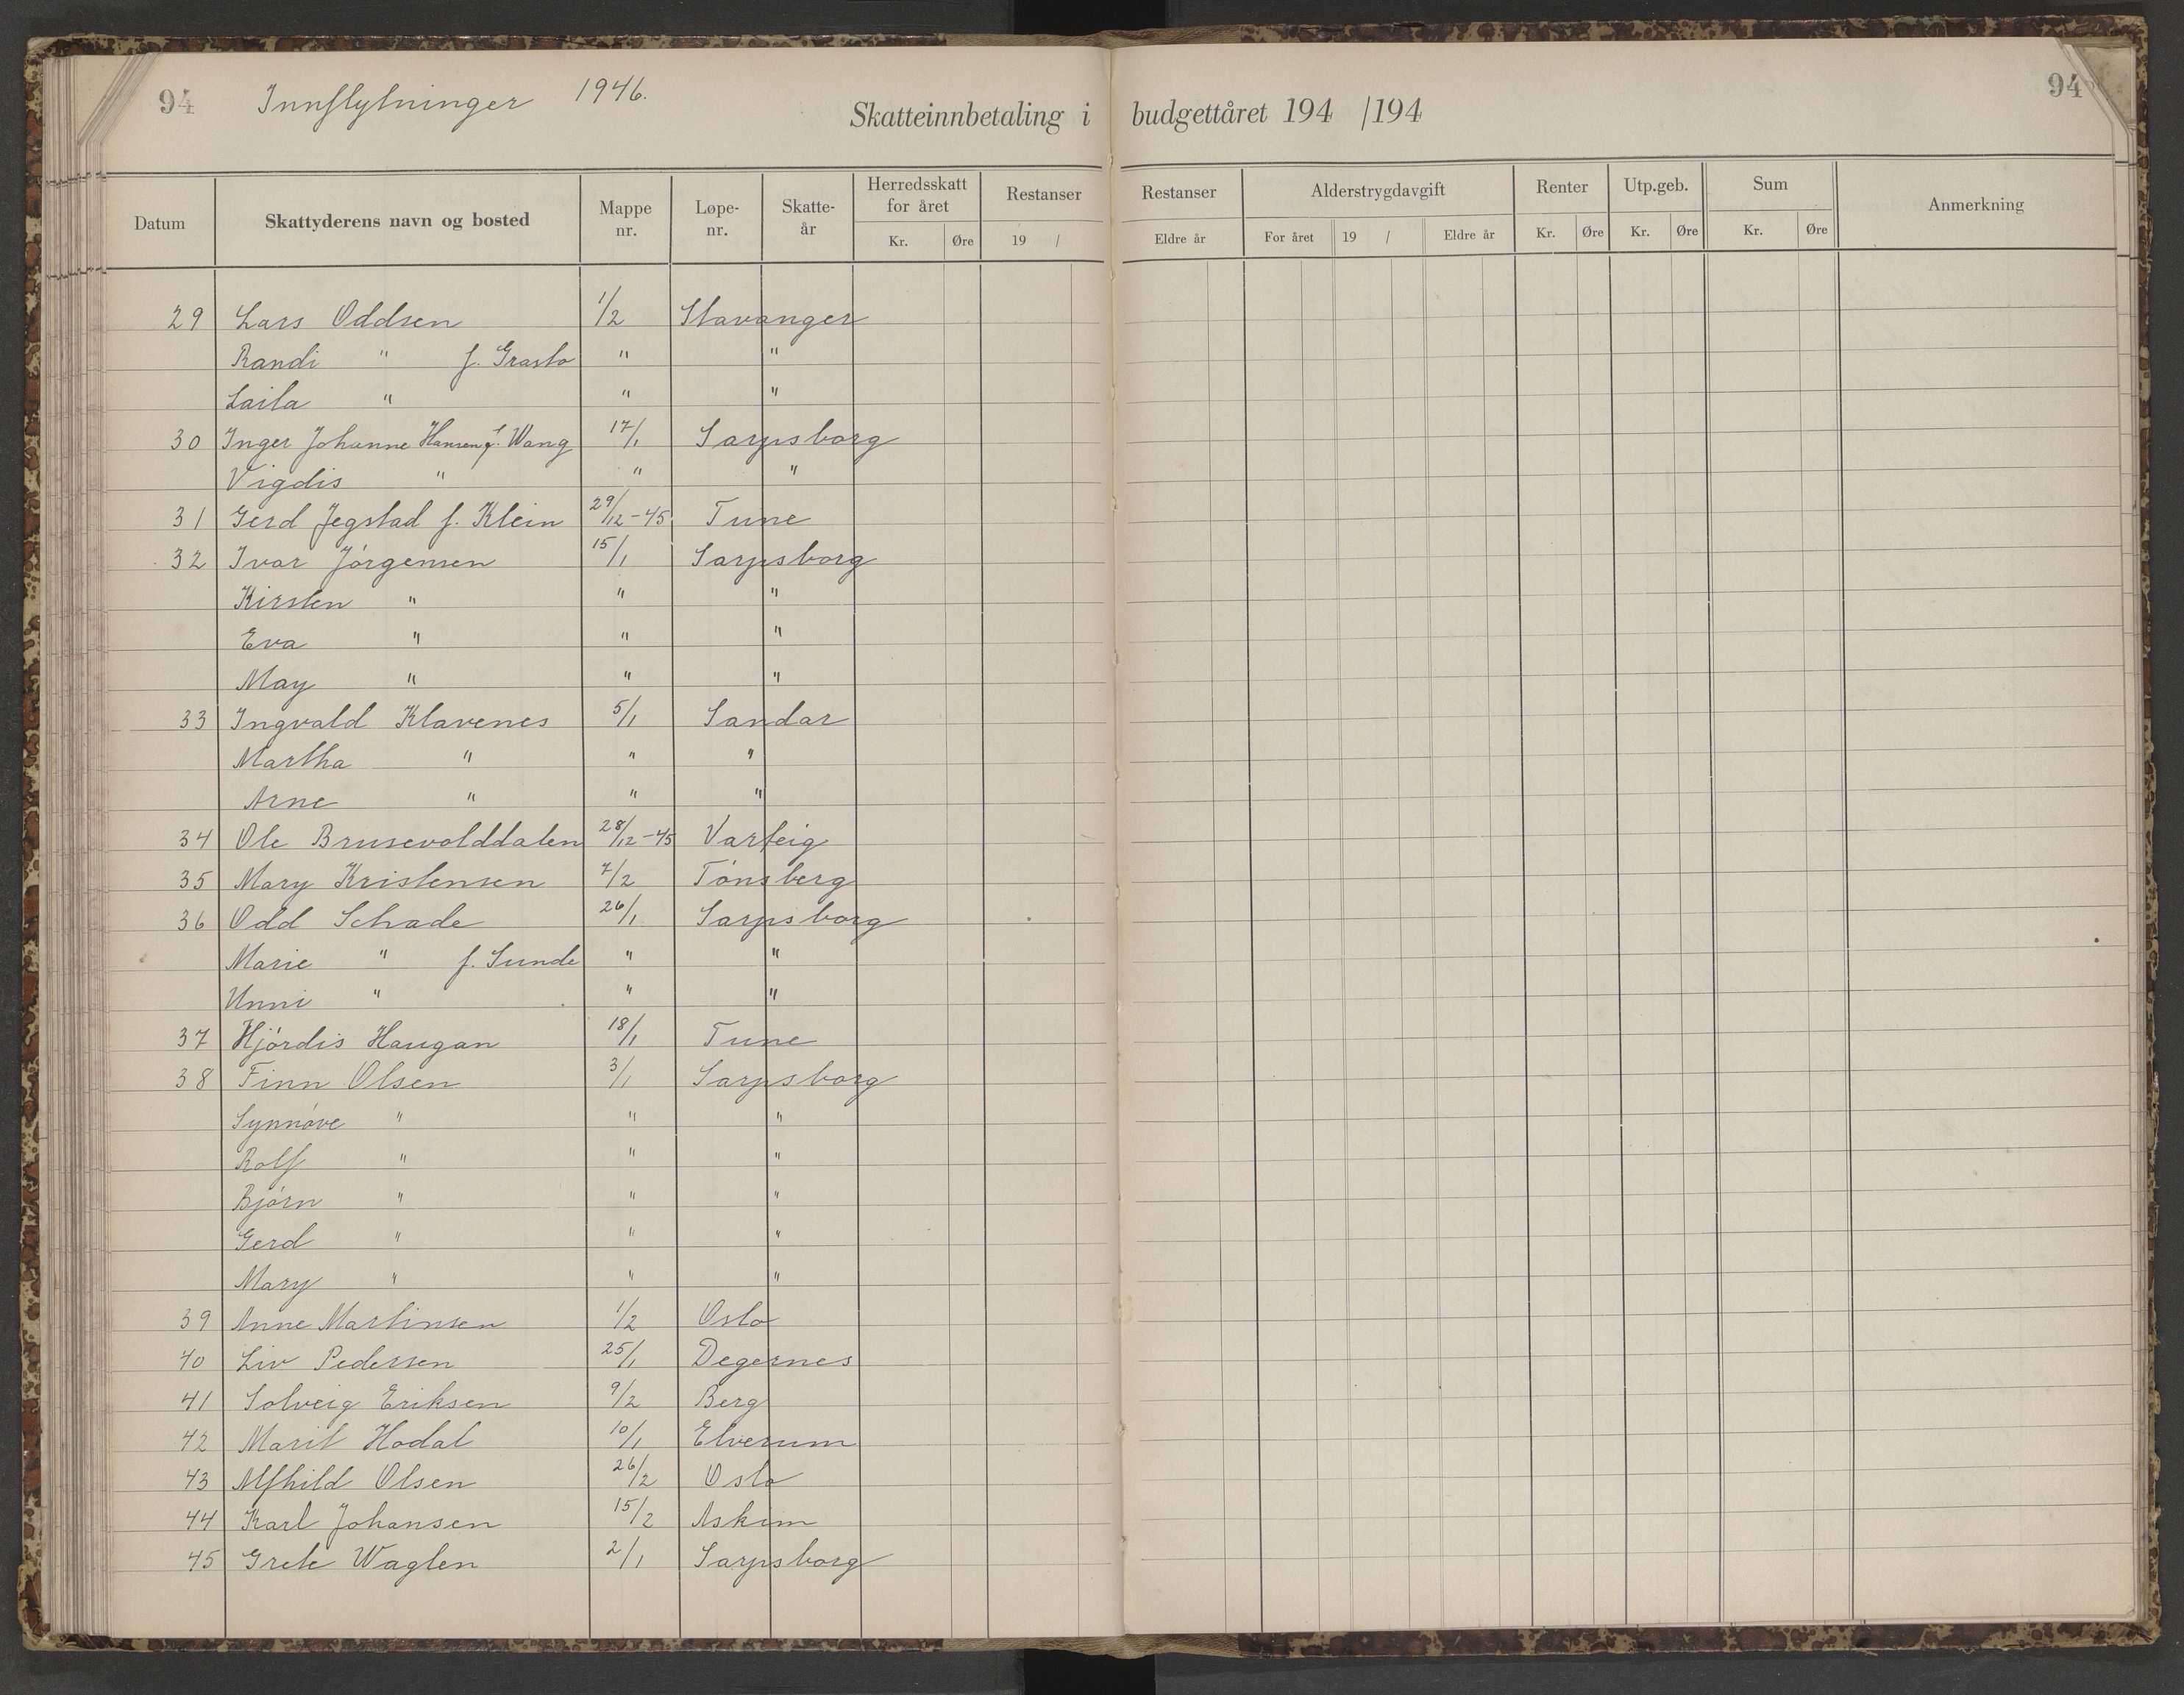 94 Innflytninger 1946. 94
Skatteinnbetaling i budgettåret 194 /194
Datum Skattyderens navn og bosted Mappe nr. Løpe-nr. Skatte-år Herredsskatt for året Kr. Øre Restanser 19 / Restanser Eldre år Alderstrygdavgift For året 19 / Eldre år Renter Kr. Øre Utp.geb. Kr. Øre Sum Kr. Øre Anmerkning
29 Lars Oddsen 1/2 Stavanger
Randi " f. Grasto " "
Laila " " "
30 Inger Johanne Hansen f. Wang 17/1 Sarpsborg
Vigdis " " "
31 Gerd Jegstad f. Klein 29/12-45 Tune
32 Ivar Jörgensen 15/1 Sarpsborg
Kirsten " " "
Eva " " "
May " " "
33 Ingvald Klavenes 5/1 Sandar
Martha " " "
Arne " " "
34 Ole Brusevolddalen 28/12-45 Varteig
35 Mary Kristensen 7/2 Tönsberg
36 Odd Schade 26/1 Sarpsborg
Marie " f. Sunde " "
Unni " " "
37 Hjördis Haugan 18/1 Tune
38 Finn Olsen 3/1 Sarpsborg
Synnöve " " "
Rolf " " "
Björn " " "
Gerd " " "
Mary " " "
39 Anne Martinsen 1/2 Oslo
40 Liv Pedersen 25/1 Degernes
41 Solveig Eriksen 9/2 Berg
42 Marit Hodal 10/1 Elverum
43 Alfhild Olsen 26/2 Oslo
44 Karl Johansen 15/2 Askim
45 Grete Waglen 2/1 Sarpsborg